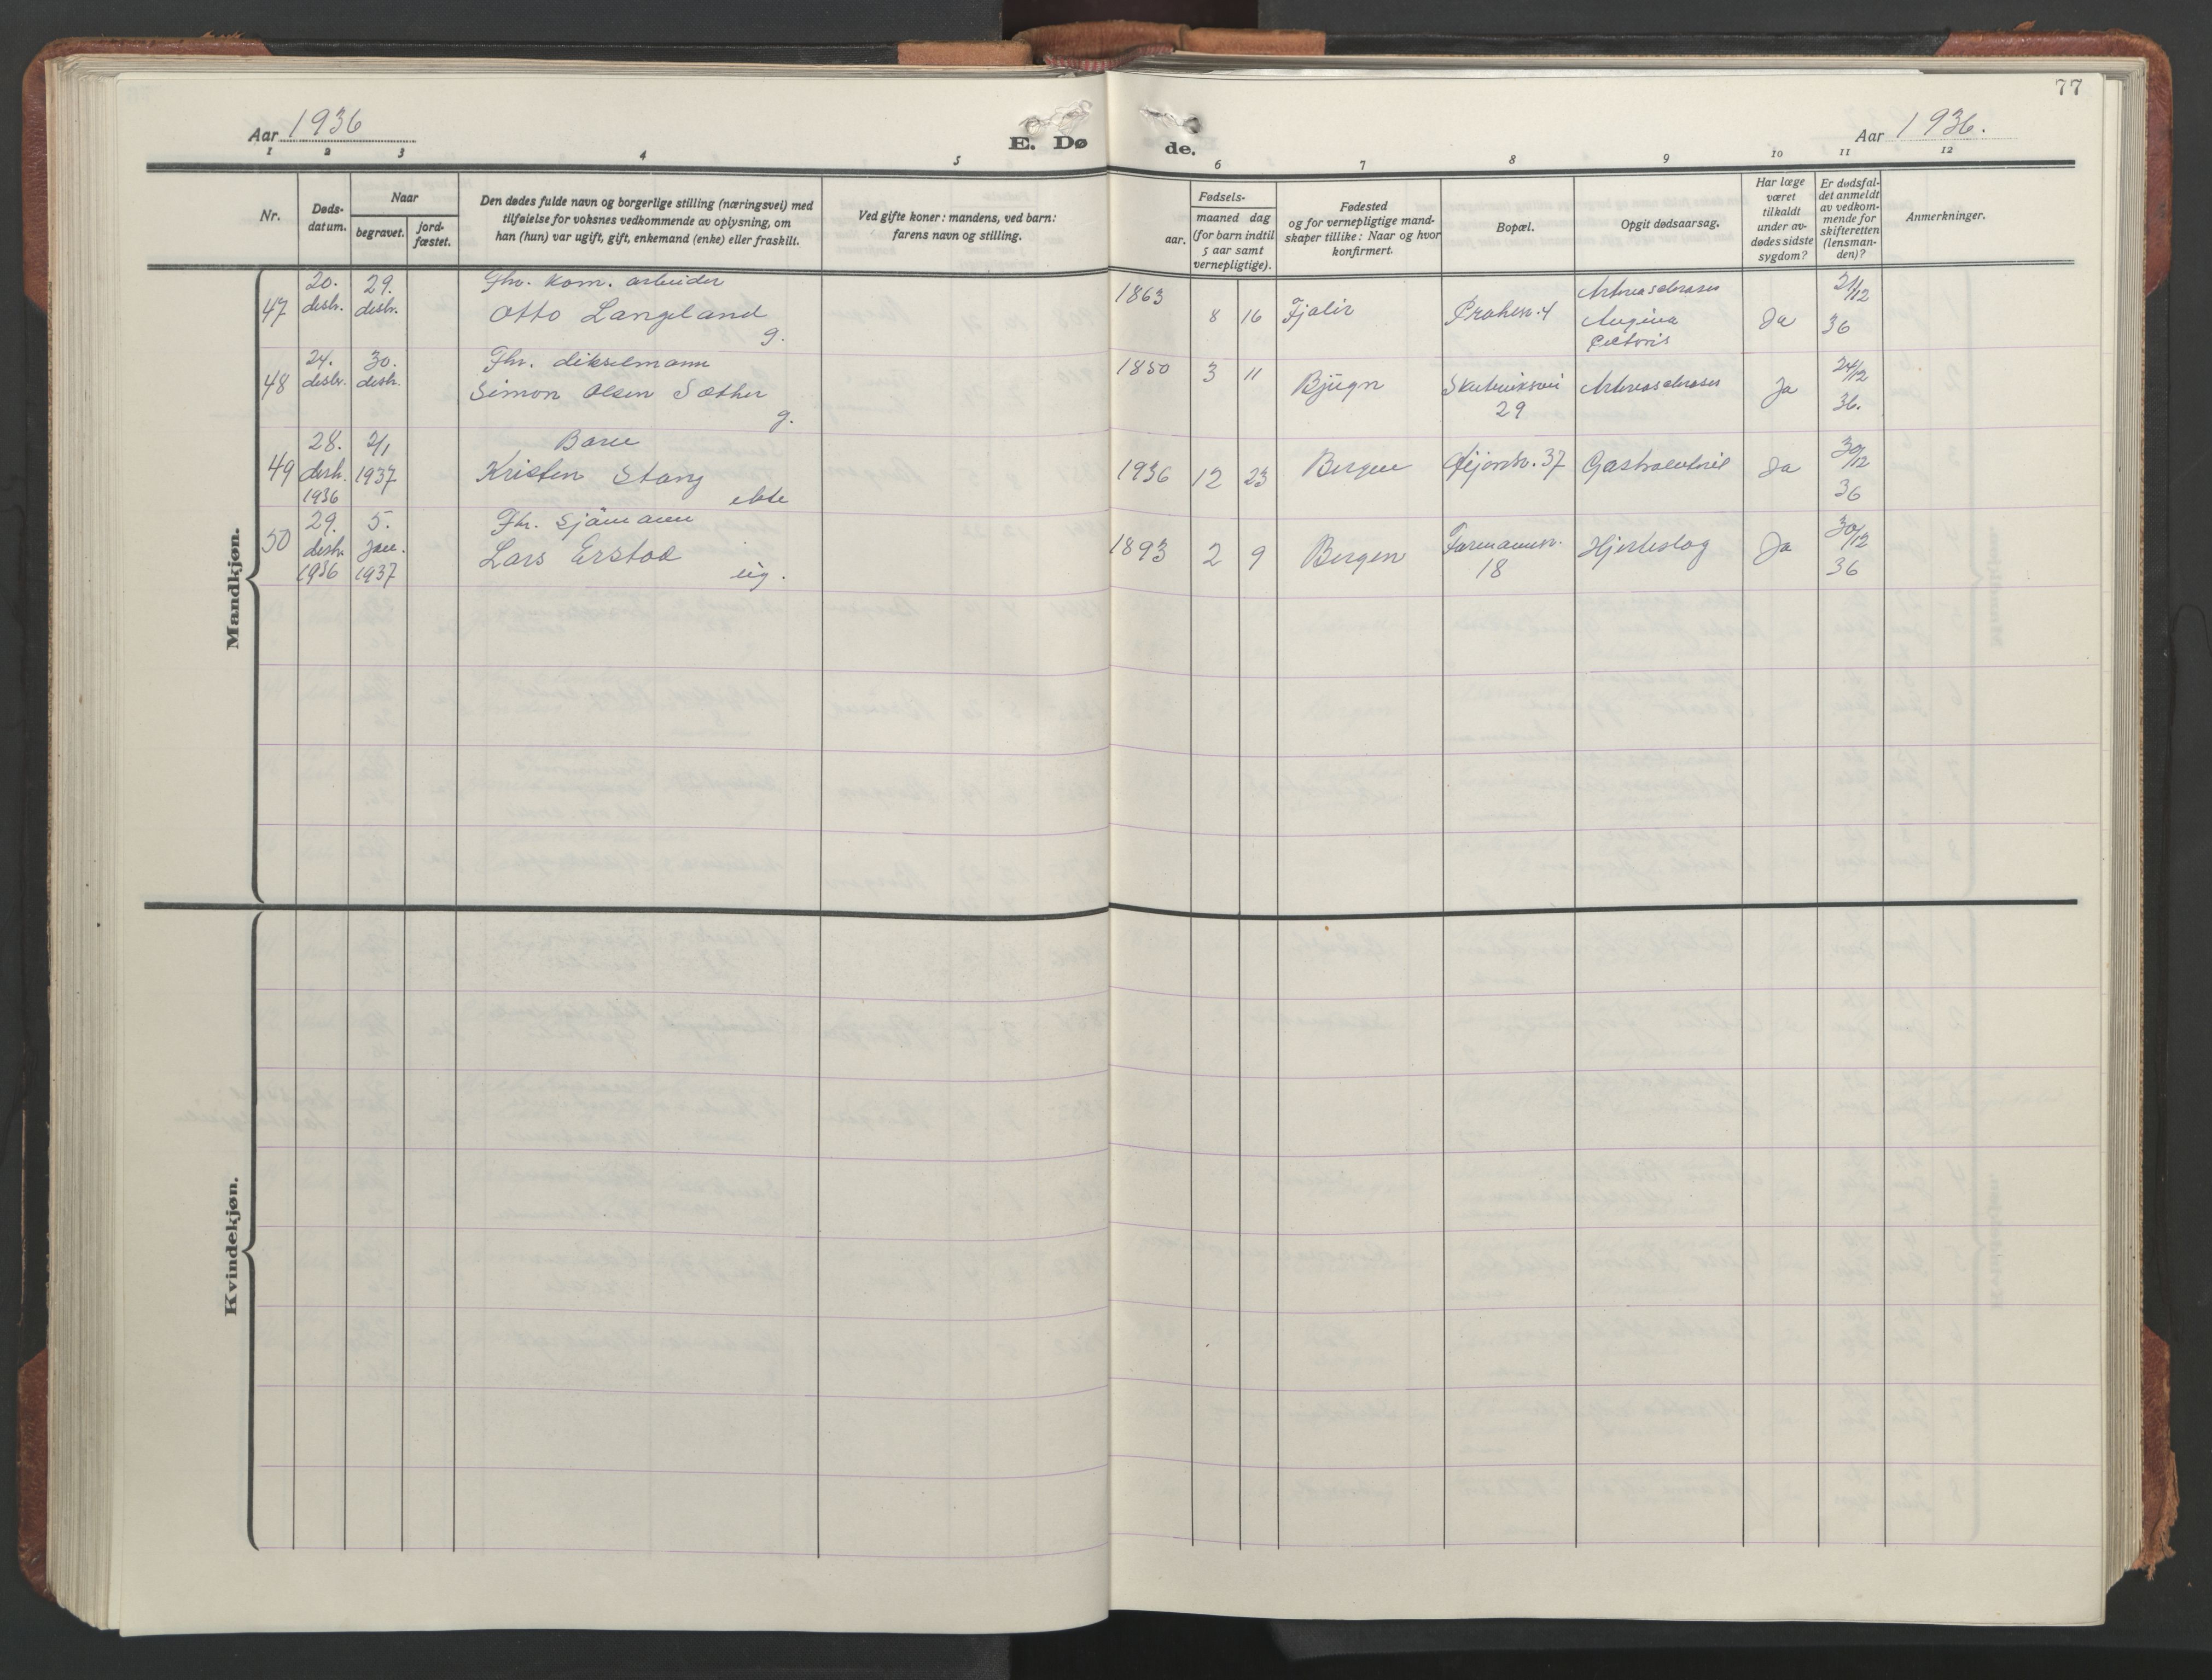 77
Aar 1936
E. Døde.
Aar 1936.
1 2 3 4 5 6 7 8 9 10 11 12
Nr.
Døds-
datum.
Naar
begravet.
jord-
fæstet.
Den dødes fulde navn og borgerlige stilling (næringsvei) med
tilføielse for voksnes vedkommende av oplysning, om
han (hun) var ugift, gift, enkemand (enke) eller fraskilt.
Ved gifte koner: mandens, ved barn:
farens navn og stilling.
Fødsels-
aar.
maaned dag
(for barn indtil
5 aar samt
vernepligtige).
Fødested
og for vernepligtige mand-
skaper tillike: Naar og hvor
konfirmert.
Bopæl.
Opgit dødsaarsag.
Har læge
været
tilkaldt
under av-
dødes sidste
sygdom?
Er dødsfal-
det anmeldt
av vedkom-
mende for
skifteretten
(lensman-
den)?
Anmerkninger.
Mandkjøn.
47
20.
desbr.
29.
desbr.
Fhv. kom. arbeider
Otto Langeland
g.
1863
8 16
Fjaler
Arteriosclerose
Angina
Pectoris
Ja
21/12
36
48
24.
desbr.
30.
desbr.
Fhv. dikselmann
Simon Olsen Sæther
g.
1850
3 11
Bjugn
Skuteviksvei
29
Arteriosclerose
Ja
24/12
36.
49
28.
desbr.
1936
2/1
1937
Barn
Kristen Stang
ekte
1936
12 23
Bergen
37
Gastroenterit
Ja
30/12
36
50
29.
desbr.
1936
5.
Jan.
1937
Fhv. Sjömann
Lars Erstad
ug.
1893
2 9
Bergen
Formannsv.
18
Hjerteslag
Ja
30/12
36
Kvindekjøn.